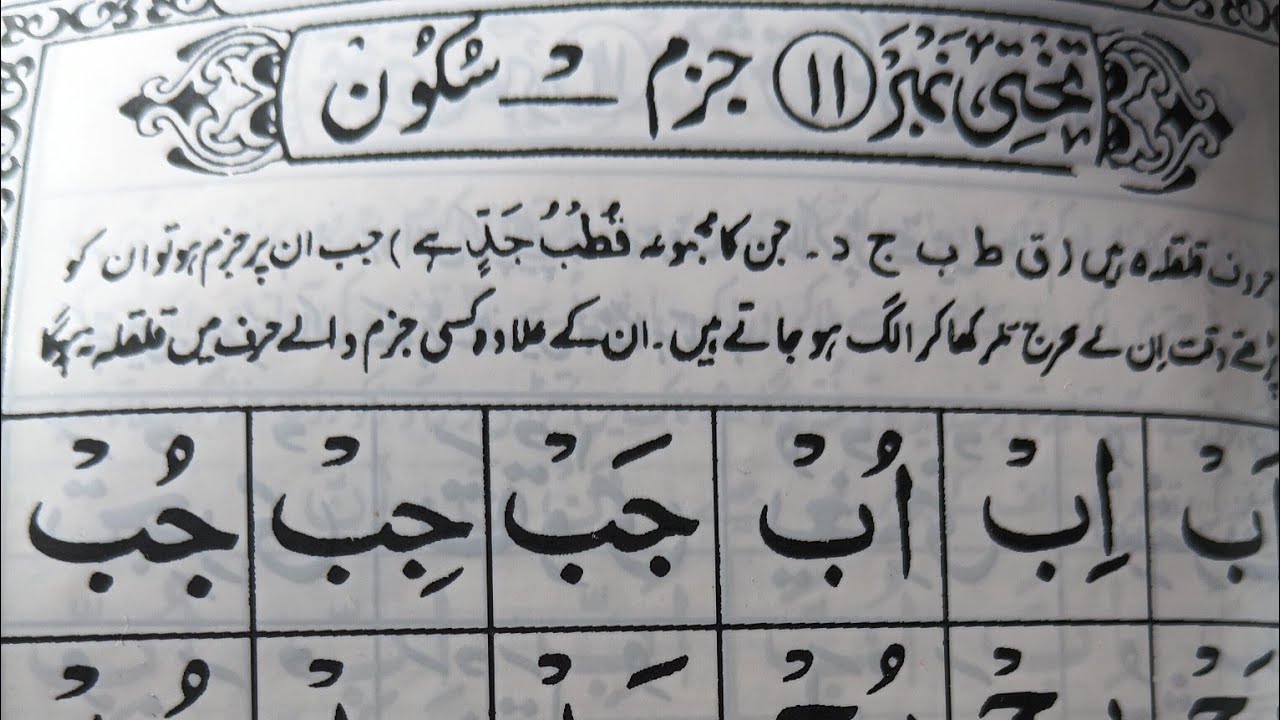 تختی نمبر ۱۱ جزم ـْـ سکون
حروف قلقلہ ہیں (ق ط ب ج د۔ جن کا مجموعہ قُطُبُ جَدٍّ ہے) جب ان پر جزم ہو تو ان کو
وقت اِن کے مخرج ٹکر کھا کر الگ ہو جاتے ہیں۔ ان کے علاوہ کسی جزم والے حرف میں قلقلہ
بْ اِبْ اُبْ جَبْ جِبْ جُبْ